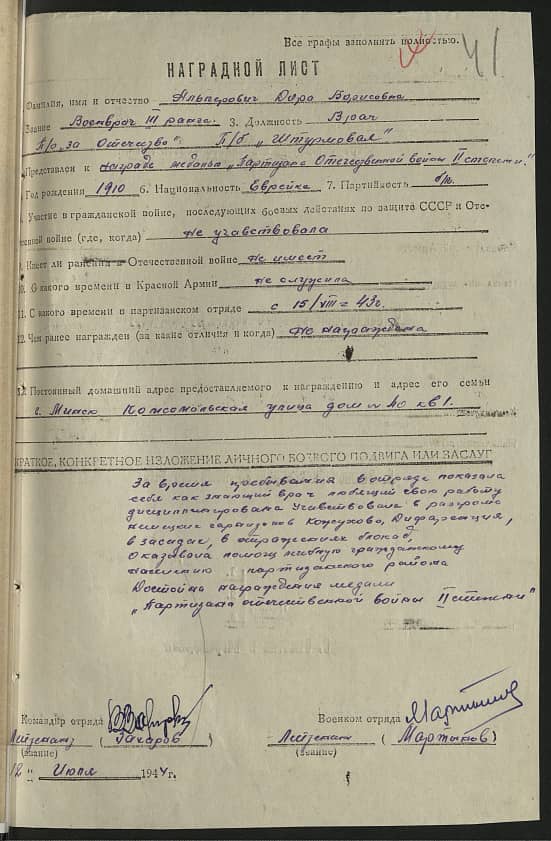 Все графы заполнять полностью.
41
НАГРАДНОЙ ЛИСТ
Фамилия, имя и отчество Альперович Дора Борисовна
Звание Военврач III ранга. 3. Должность Врач
П/о „за Отечество" П/б „Штурмовая"
Представлен к награде медалью „Партизана Отечественной войны II степени."
Год рождения 1910 6. Национальность Еврейка 7. Партийность б/п.
Участие в гражданской войне, последующих боевых действиях по защите СССР и Оте-
ственной войне (где, когда) не учавствовала
9. Имеет ли ранения в Отечественной войне не имеет
10. С какого времени в Красной Армии не служила
11. С какого времени в партизанском отряде с 15/VIII = 43г.
12. Чем ранее награжден (за какие отличия и когда) не награждена
13. Постоянный домашний адрес предоставляемого к награждению и адрес его семьи
г. Минск Комсомольская улица дом № 40 кв 1.
КРАТКОЕ, КОНКРЕТНОЕ ИЗЛОЖЕНИЕ ЛИЧНОГО БОЕВОГО ПОДВИГА ИЛИ ЗАСЛУГ
За время пребывания в отряде показала
себя как знающий врач любящий свою работу
дисциплинирована Учавствовала в разгроме
немецких гарнизонов
в засадах, в отражениях блокад,
Оказывала помощь гражданскому
населению партизанского района
Достойна награждения медали
„Партизана отечественной войны II степени"
Командир отряда
Военком отряда
Лейтенант (Захаров)
Лейтенант (Мартынов)
(звание)
(звание)
12 " Июля 1944г.